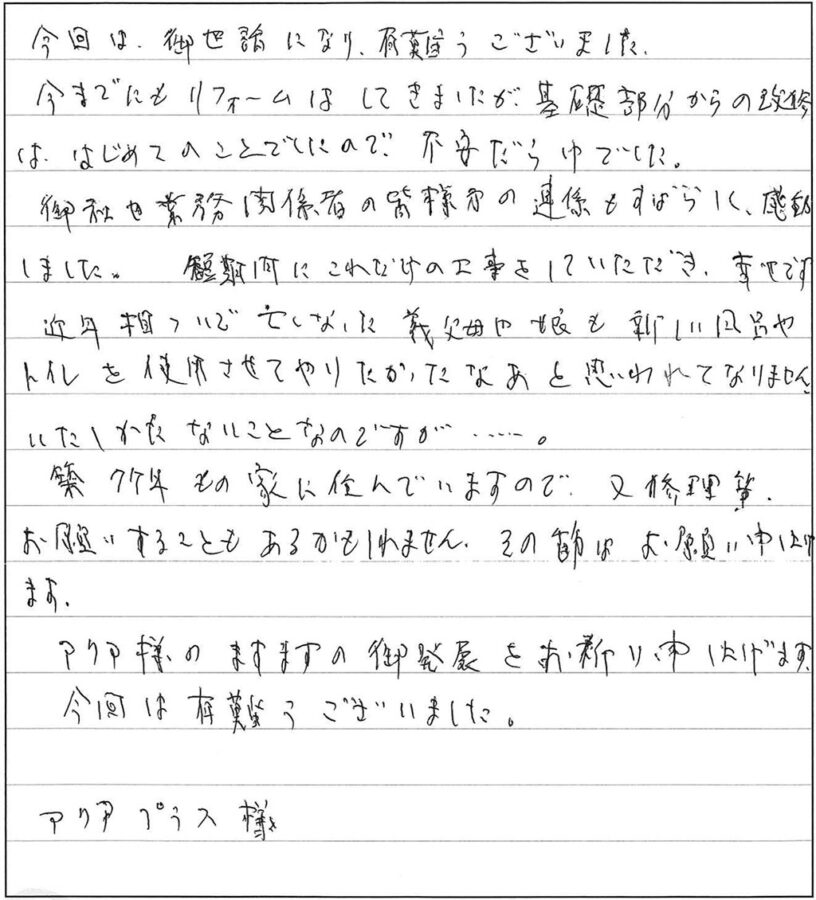 今回は、御世話になり、有難うございました。
今までにもリフォームはしてきましたが、基礎部分からの改修
は、はじめてのことでしたので、不安だらけでした。
御社や業務関係者の皆様方の連係もすばらしく、感動
しました。 短期間にこれだけの工事をしていただき、幸せです
近年相ついで亡くなった義父母や娘も新しい風呂や
トイレを使用させてやりたかったなあと思いわれてなりません
いたしかたないことなのですが……。
築77年もの家に住んでいますので、又修理等、
お願いすることもあるかもしれません。その節はよお願い申し上げ
ます。
アクア様のますますの御発展をお祈り申し上げます。
今回は有難うございました。
アクアプラス様